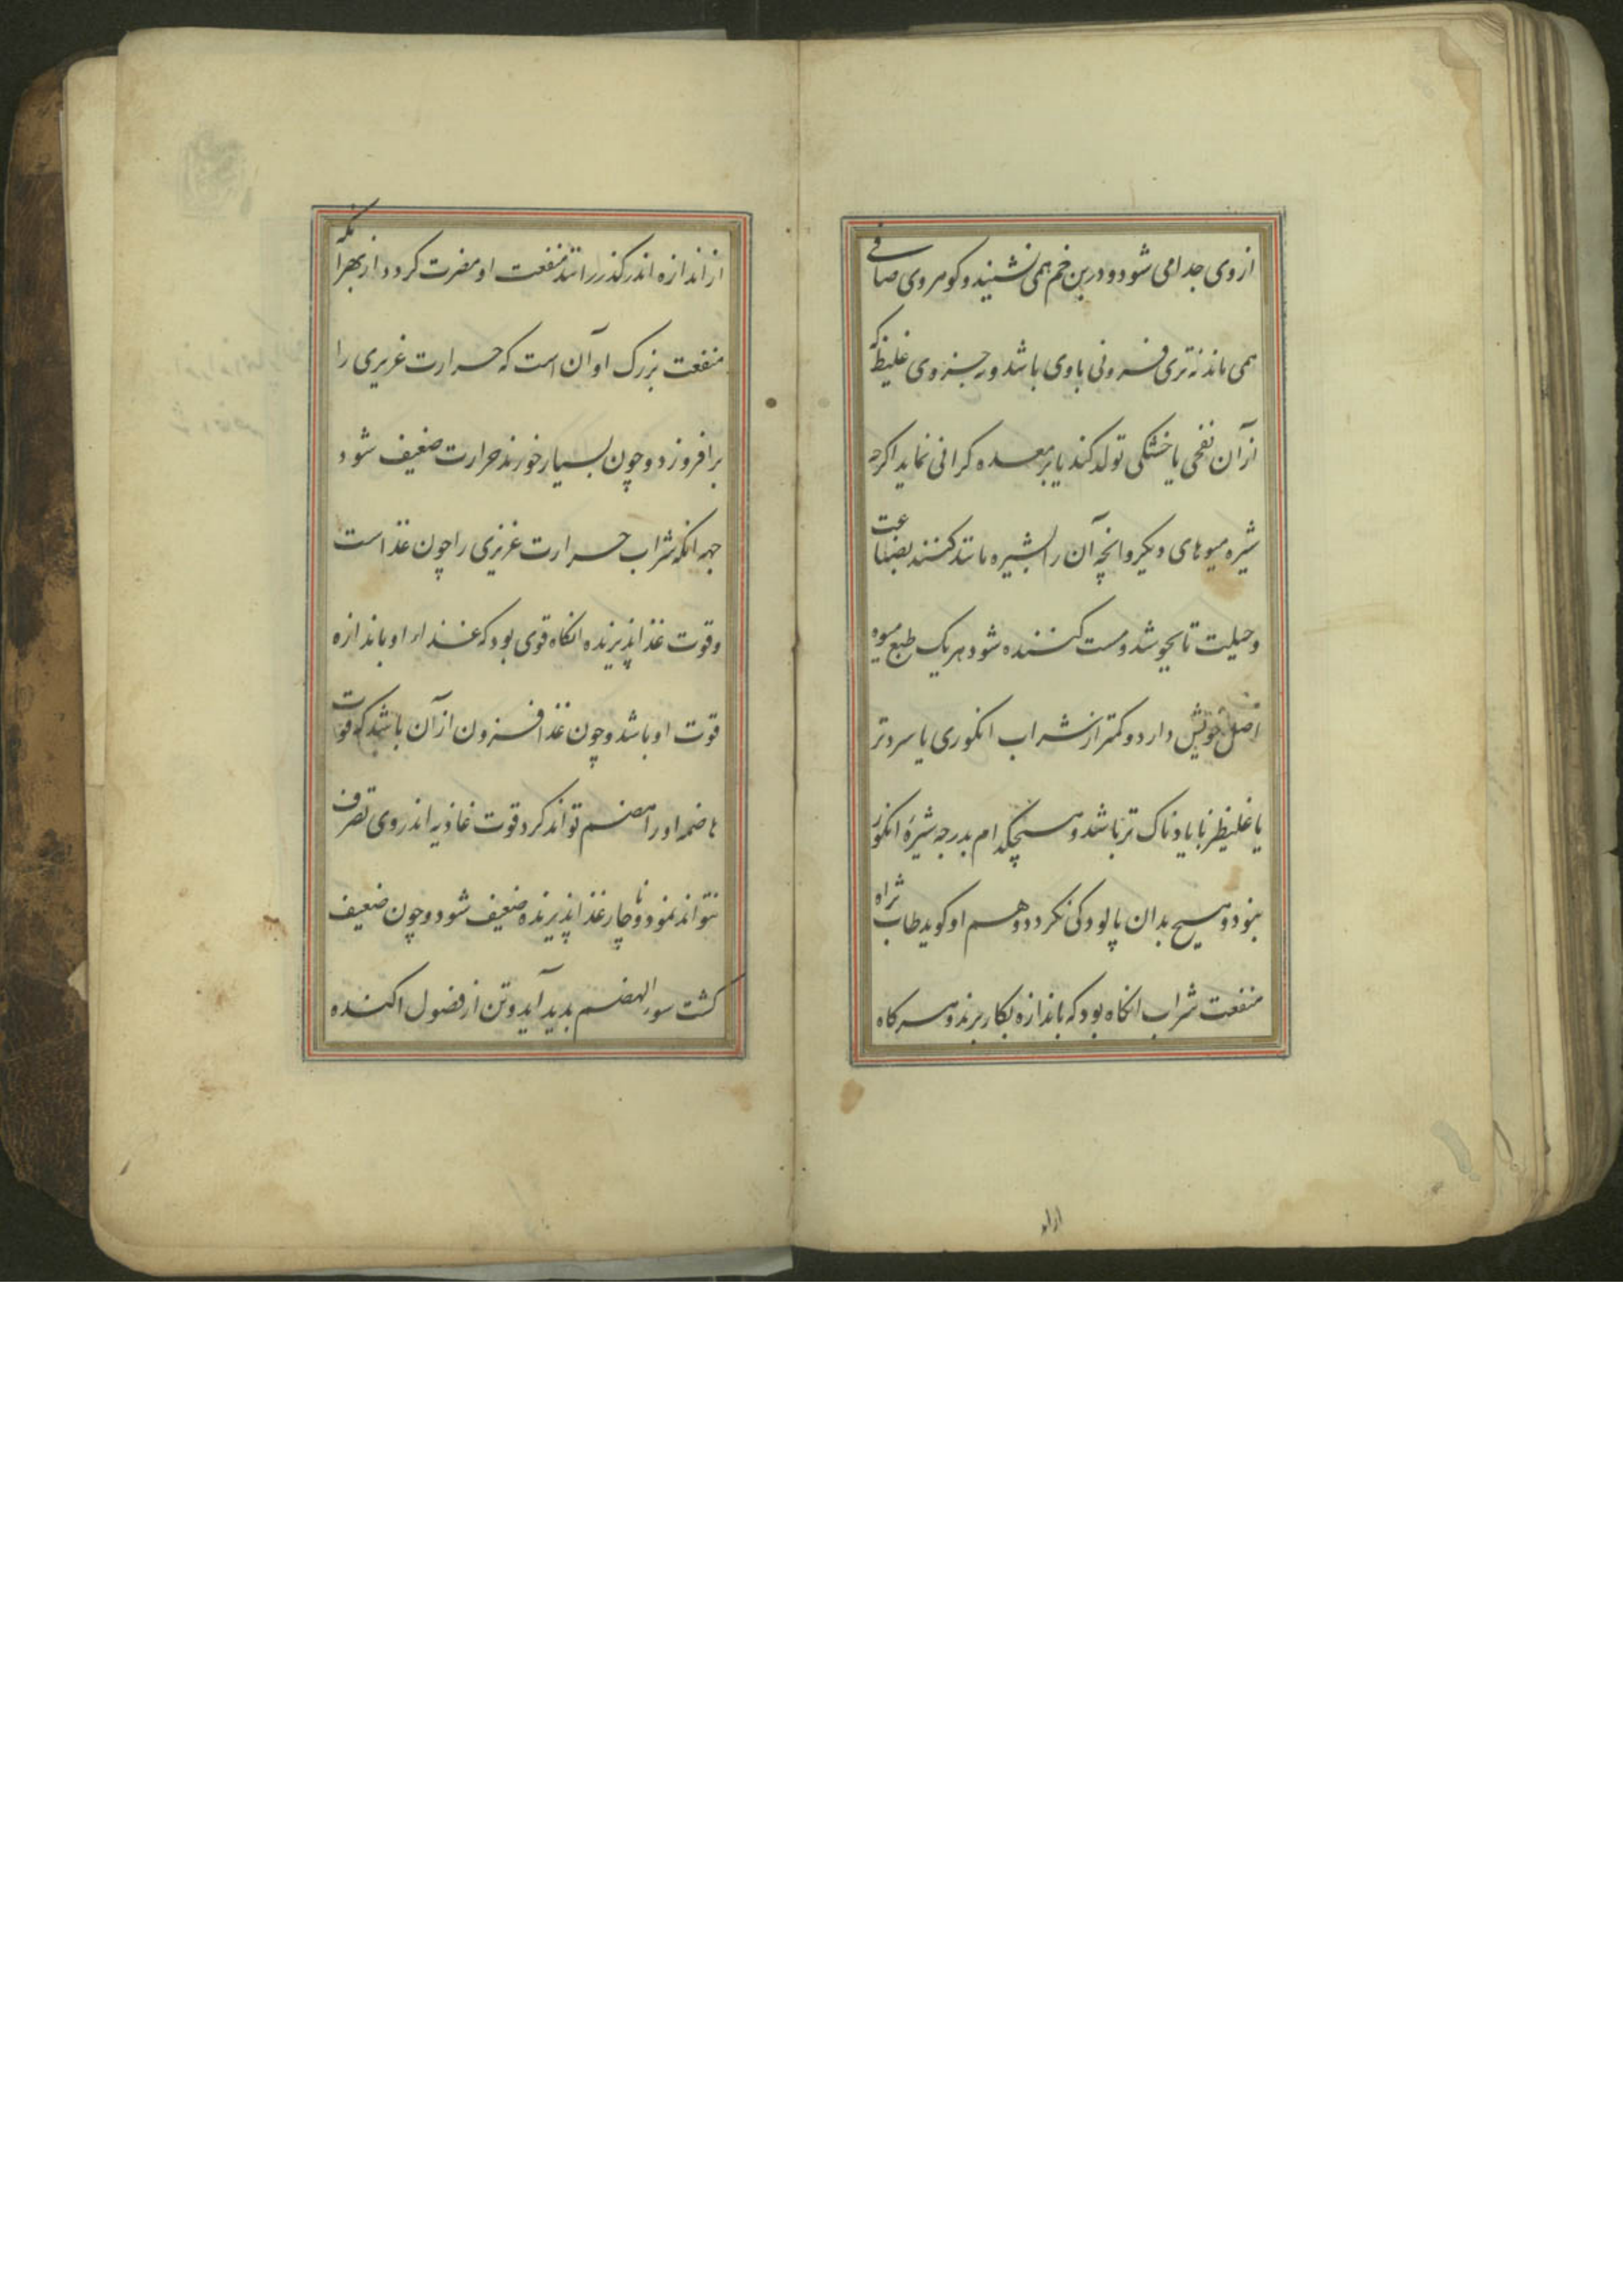 از وی جدا می شود و در بن خم همی نشیند و گوهر وی صافی
همی ماند نه تری فزونی با وی باشد و نه جزوی غلیظ که
از آن نفخی یا خشکی تولد کند یا بر معده کرانی نماید اکرچه
شیره میوهای دیکر و انچه آن را بشیره مانند کنند بصناعت
و حیلیت تا بجوشد و مست کننده شود هر یک طبع میوه
اصل خویش دارد و کمتر از شراب انکوری یا سردتر
یا غلیظ تر یا بادناک تر باشد و هیچکدام بدرجه شیرهٔ انکور
نبود و هیچ بدان پالودکی نکردد و هم او کوید طاب ثراه
منفعت شراب انکاه بود که باندازه بکار برند و هرکاه
از اند
از اندازه اندر کذرانند منفعت او مضرت کردد از بهر آنکه
منفعت بزرک او آن است که حرارت غریزی را
برافروزد و چون بسیار خورند حرارت ضعیف شود
جهه انکه شراب حرارت غریزی را چون غذا است
و قوت غذا پذیرنده انکاه قوی بود که غذاء او باندازه
قوت او باشد و چون غذا افزون از آن باشد که قوت
هاضمه او را هضم تواند کرد قوت غاذیه اندر وی تصرف
نتواند نمود و ناچار غذا پذیرنده ضعیف شود و چون ضعیف
کشت سوء الهضم بدید آید و تن از فضول اکنده